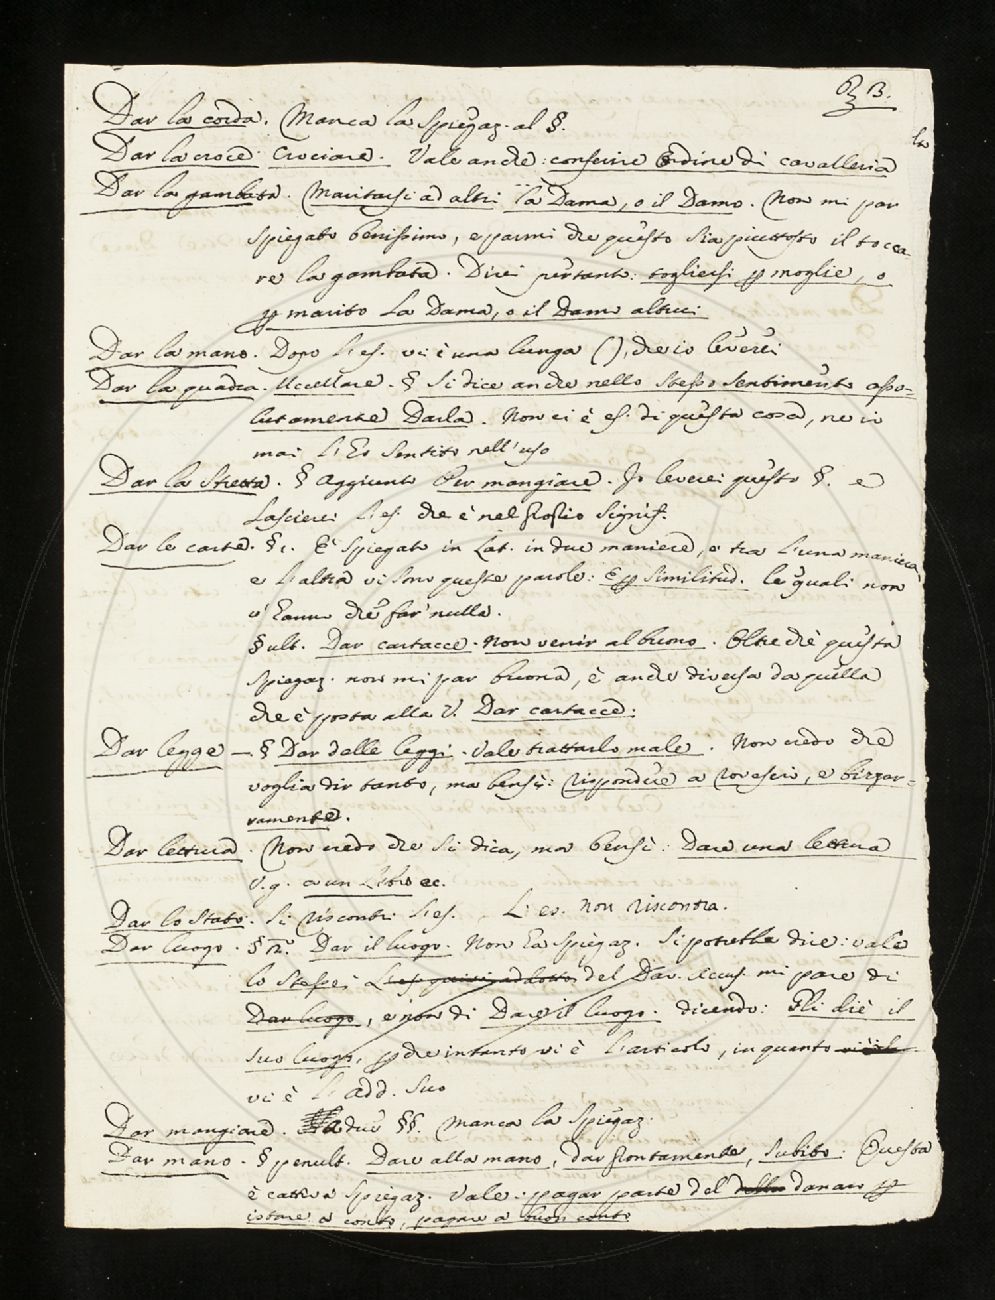 B.
Dar la corda. Manca la Spiegaz. al §.
Dar la croce. Crociare. Vale anche: conferire Ordine di cavalleria
Dar la gambata. Maritarsi ad altri la Dama, o il Damo. Non mi par
Spiegato benissimo, e parmi che questo sia piuttosto il tocca
re la gambata. Direi pertanto: togliersi p moglie, o
p marito La Dama, o il Damo altrui
Dar la mano. Dopo l'es. vi è una lunga ( ), che io leverei
Dar la quadra. Uccellare. § Si dice anche nello stesso sentimento asso-
lutamente Darla. Non ci è es. di questa cosa, ne io
mai l'ho sentito nell'uso
Dar la Stretta. § Aggiunto Per mangiare. Io leverei questo §. e
Lascierei l'es. che è nel proprio signif.
Dar le carte. §1. È Spiegato in Lat. in due maniere, e tra l'una maniera
e l'altra vi sono queste parole: E p similitud. le quali non
v'hanno che far nulla.
§ult. Dar cartacce. Non venir al buono. Oltre che questa
Spiegaz. non mi par buona, è anche diversa da quella
che è posta alla V. Dar cartacce:
Dar legge — § Dar delle leggi. Vale trattarlo male. Non credo che
voglia dir tanto, ma bensì: rispondere a rovescio, e bizzar-
ramente.
Dar lettura. Non credo che si dica, ma bensì: Dare una lettura
v.g. a un Libro ec.
Dar lo Stato. Si riscontri l'es. L'es. non riscontra.
Dar luogo. § n.° Dar il luogo. Non ha Spiegaz. Si potrebbe dire: vale
lo Stesso. L'es. quivi addotto del Dav. Accus. mi pare di
Dar luogo, e non di Dare il luogo. dicendo: Gli diè il
suo luogo, p che intanto vi è l'articolo, in quanto
vi è l'add. Suo
Dar mangiare. A due §§. Manca la Spiegaz.
Dar mano. § penult. Dare alla mano, dar prontamente, subito. Questa
è cattiva Spiegaz. Vale: pagar parte del danaro p
istare a conto, pagare a buon conto